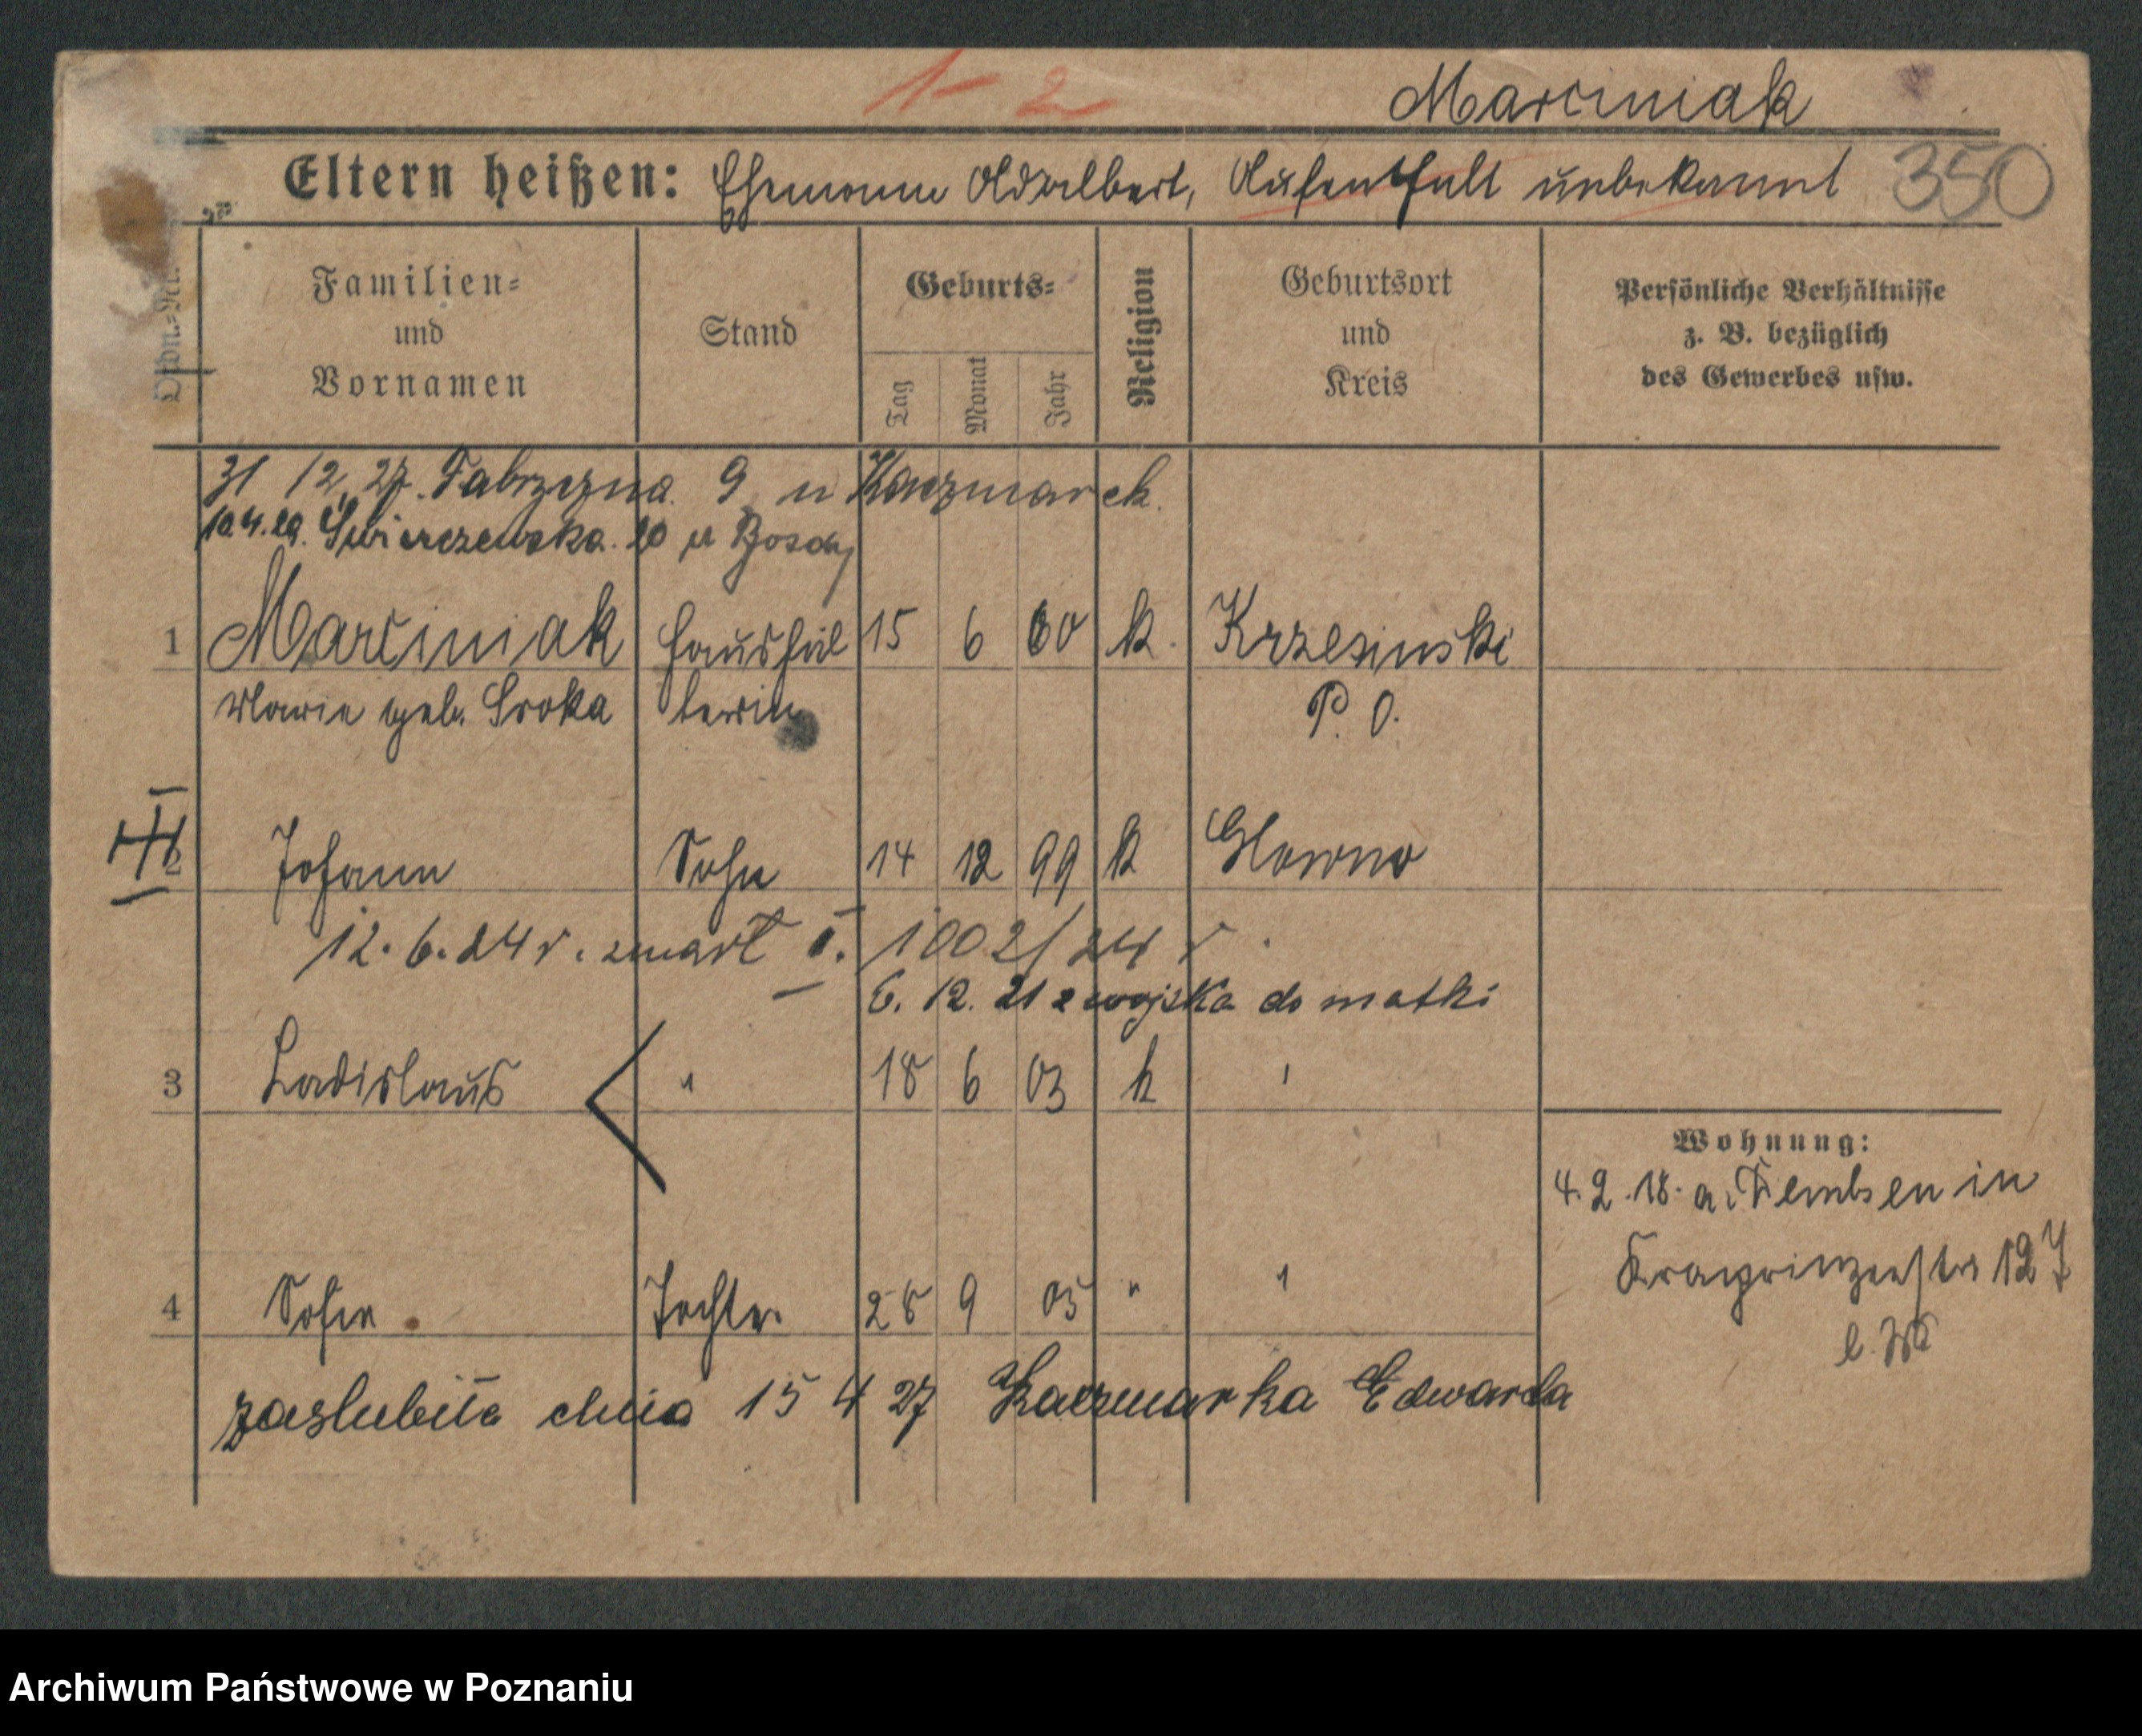 1-2
Marciniak
Eltern heißen: Ehemann Adalbert, Aufenthalt unbekannt 350
Opdn.-Nr.
Familien=
und
Vornamen
Stand
Geburts=
Tag
Monat
Jahr
Religion
Geburtsort
und
Kreis
Persönliche Verhältnisse
z. B. bezüglich
des Gewerbes usw.
31 12. 27. Fabryczna. 9 u Kaczmarek.
10.4.29. 20 u
1 Marciniak Haushäl 15 6 60 k. Krzesinski
Marie geb. Sroka terin P. O.
2 Johann Sohn 14 12 99 k Glowno
12. 6. 24 r. zmarł I. 1002/24 r.
6. 12. 21 z wojska do matki
3 Ladislaus " 18 6 03 k "
Wohnung:
4. 2. 18. a. in
Kronprinzenstr 127
4 Sofie Tochter. 28 9 05 " "
zaslubiła dnia 15 4 27 Kaczmarka Edwarda
Archiwum Państwowe w Poznaniu